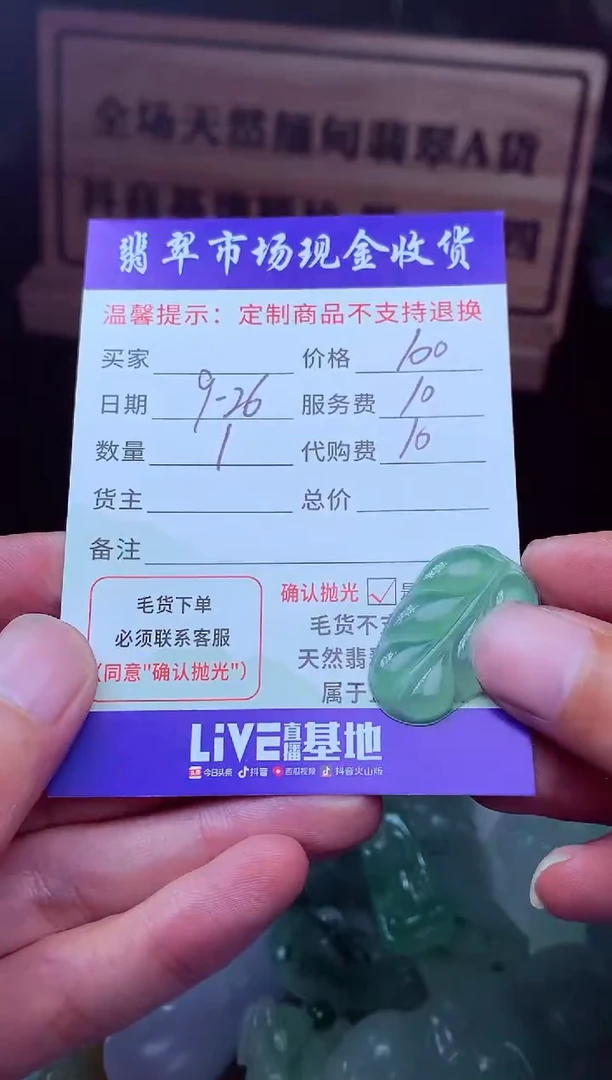 全场天然缅甸翡翠A货
翡翠市场现金收货
温馨提示：定制商品不支持退换
买家 价格 100
日期 9-26 服务费 10
数量 1 代购费 10
货主 总价
备注
毛货下单
必须联系客服
（同意"确认抛光"）
确认抛光 ☑是
毛货不
天然翡
属于
LiVE直播基地
今日头条 抖音 西瓜视频 抖音火山版